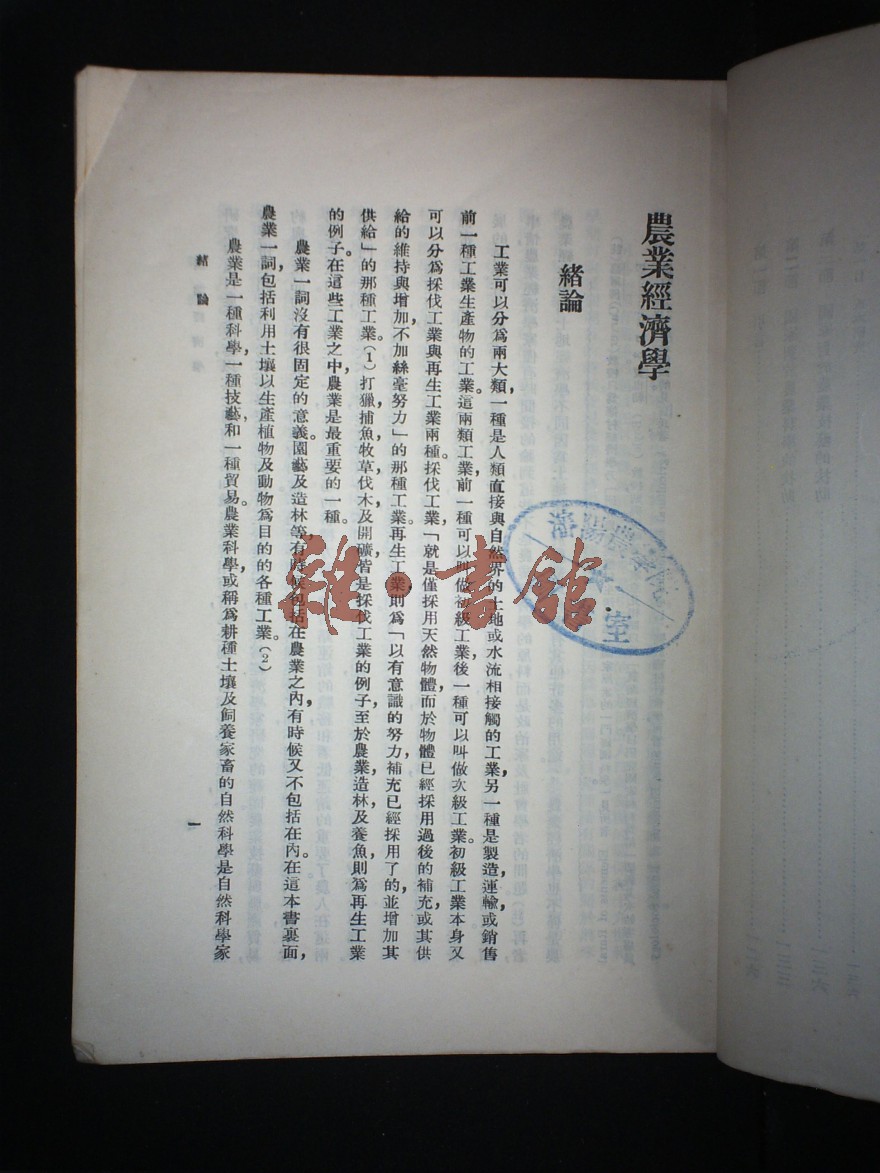 農業經濟學
緒論
工業可以分爲兩大類,一種是人類直接與自然界的土地或水流相接觸的工業,另一種是製造,運輸,或銷售
前一種工業生產物的工業。這兩類工業,前一種可以叫做初級工業,後一種可以叫做次級工業。初級工業本身又
可以分爲採伐工業與再生工業兩種。採伐工業,「就是僅採用天然物體,而於物體已經採用過後的補充,或其供
給的維持與增加,不加絲毫努力」的那種工業。再生工業,則爲「以有意識的努力,補充已經採用了的,並增加其
供給」的那種工業。(1)打獵,捕魚,牧草,伐木,及開礦皆是採伐工業的例子,至於農業,造林,及養魚,則爲再生工業
的例子。在這些工業之中,農業是最重要的一種。
農業一詞沒有很固定的意義。園藝及造林等,有時候包括在農業之內,有時候又不包括在內。在這本書裏面,
農業一詞,包括利用土壤以生產植物及動物爲目的的各種工業。(2)
農業是一種科學,一種技藝,和一種貿易。農業科學,或稱爲耕種土壤及飼養家畜的自然科學,是自然科學家
緒論
一
雜·書館
室